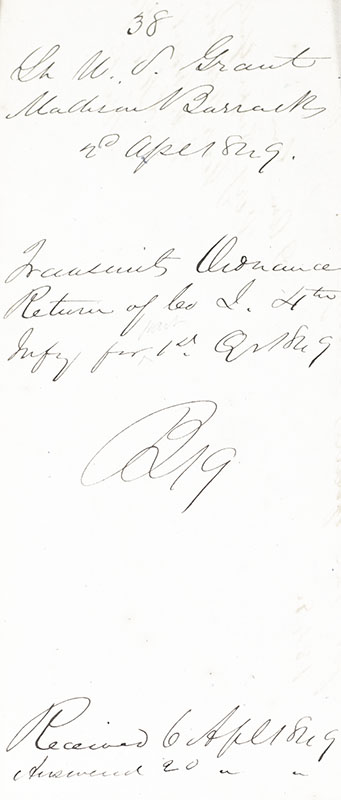 38
Lt U. S. Grant
Madison Barracks
2d Apl 1849.
Transmits Ordnance
Return of Co I. 4th
Infy for 1st Qr 1849
B19
Received 6 Apl 1849
Answered 20 " "